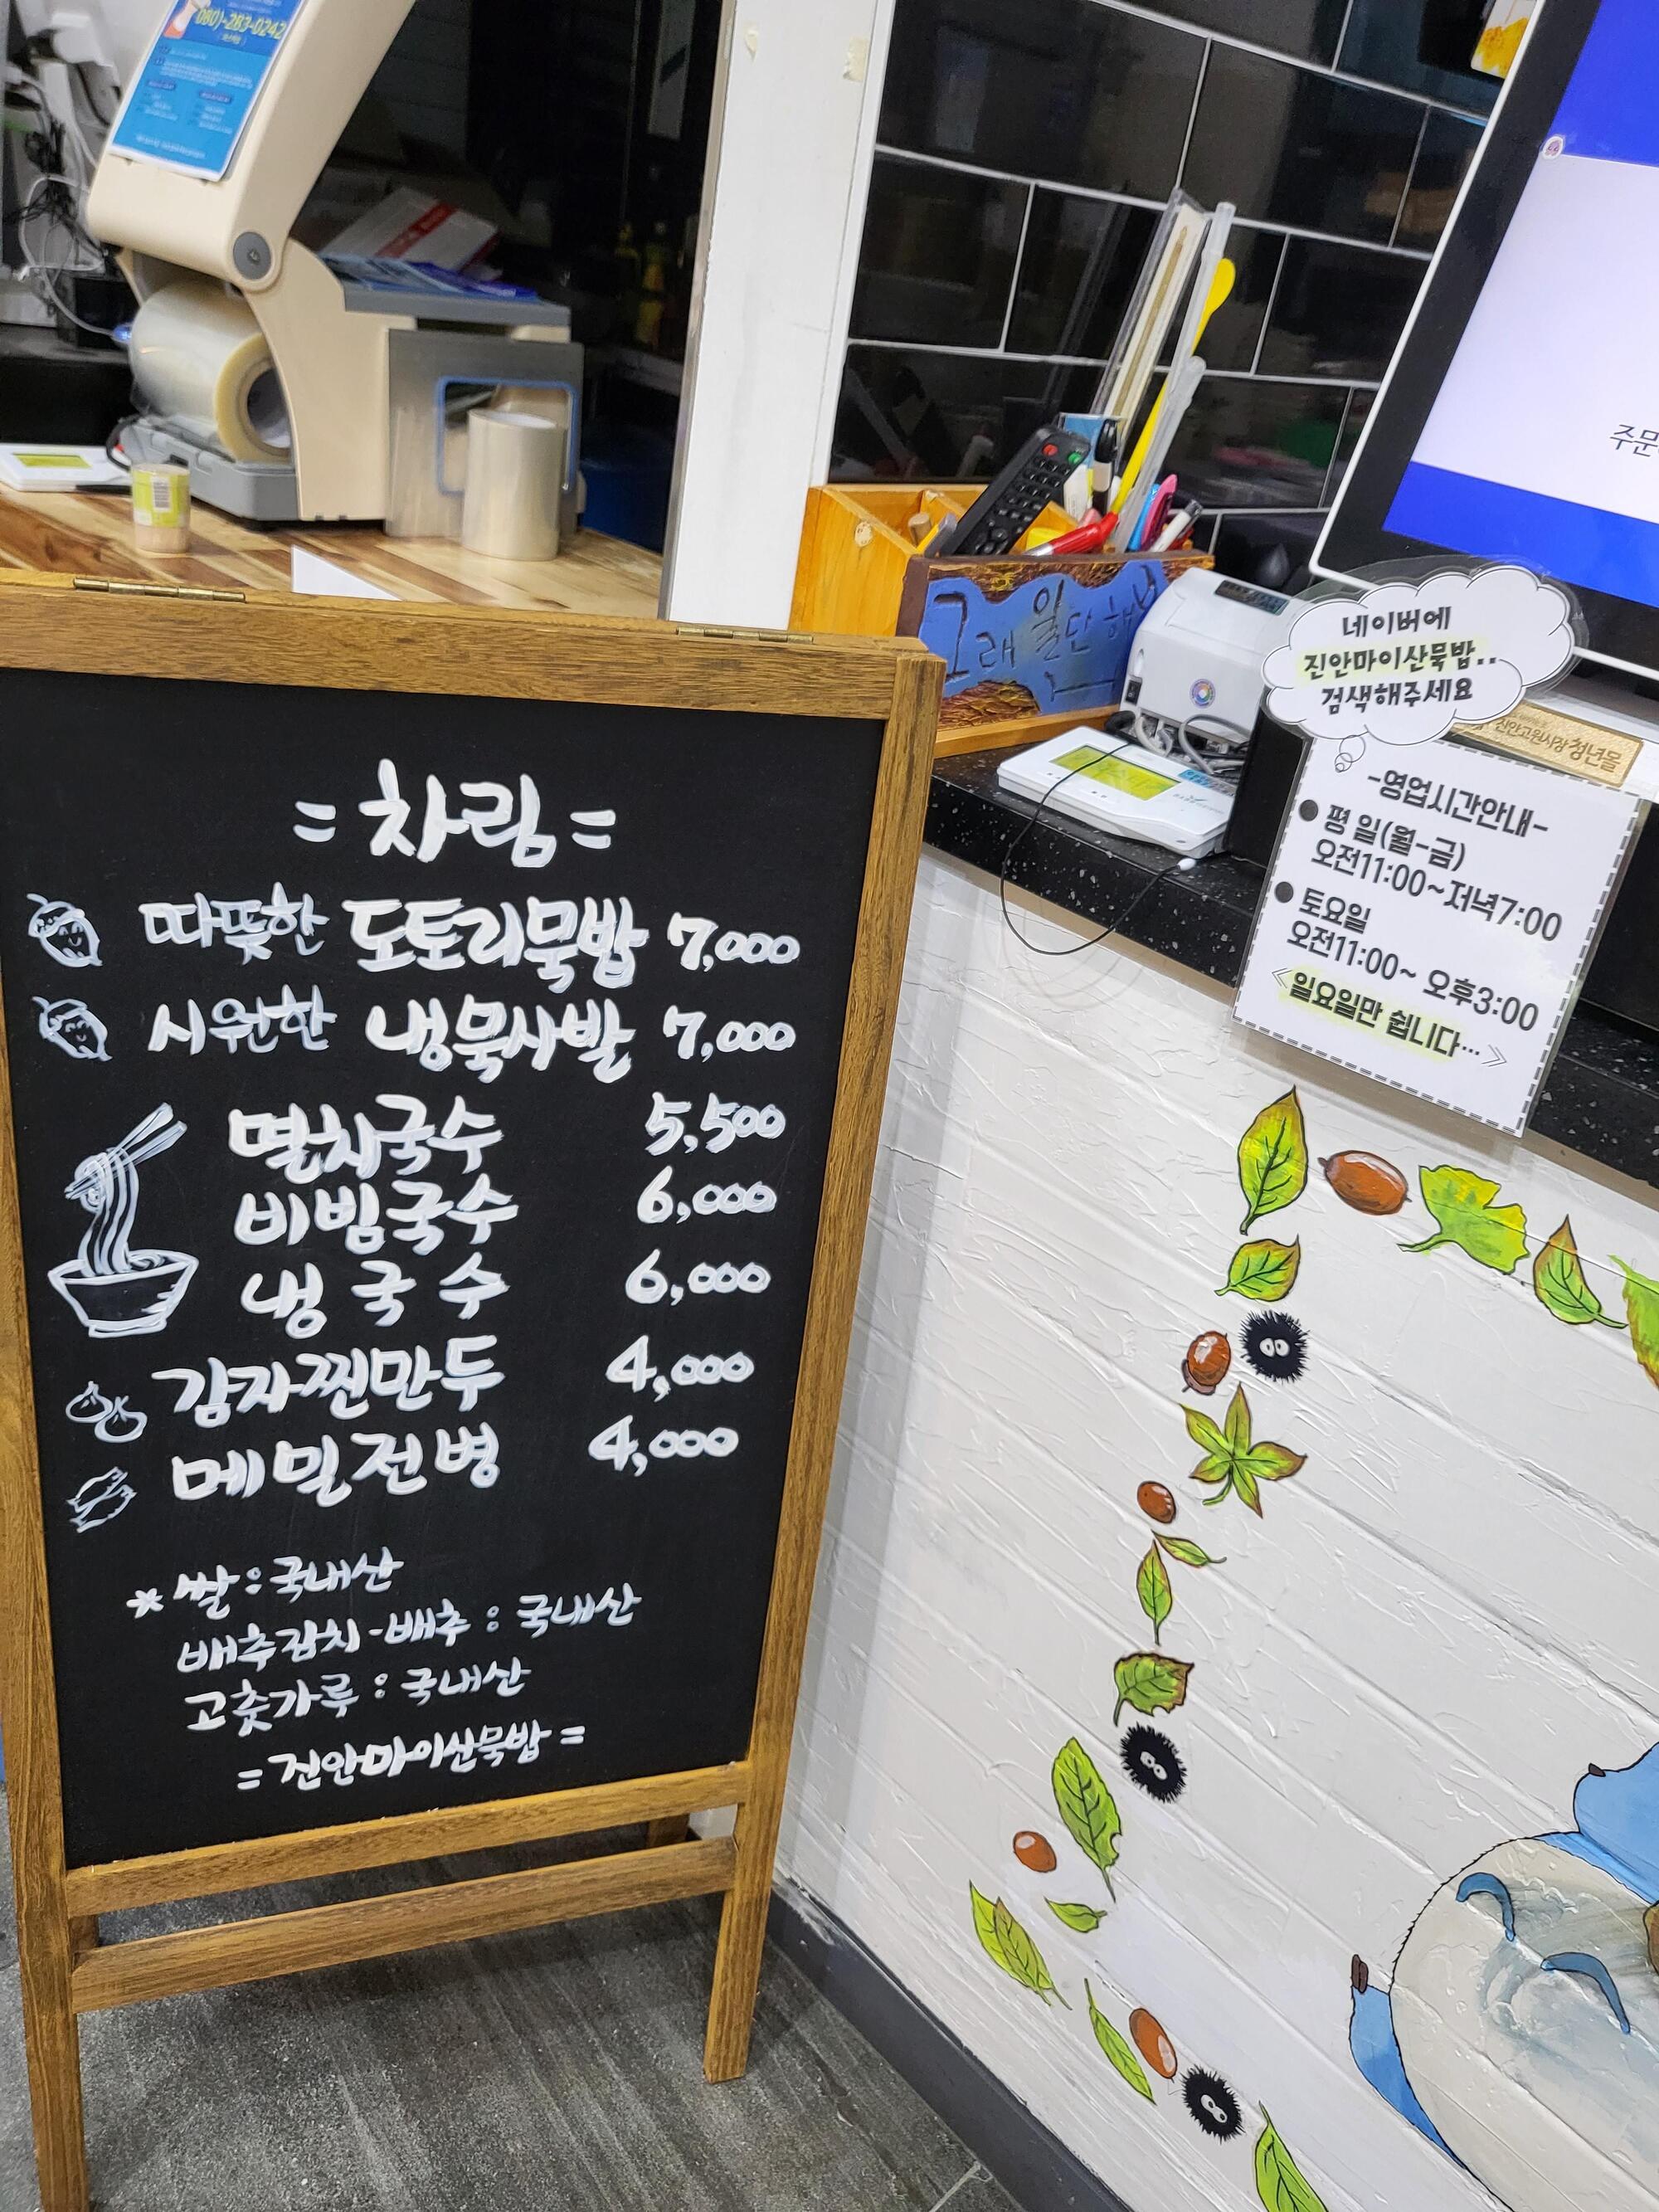 080)-283-0242
= 차림 =
따뜻한 도토리묵밥 7,000
시원한 냉묵사발 7,000
멸치국수 5,500
비빔국수 6,000
냉국수 6,000
감자찐만두 4,000
메밀전병 4,000
* 쌀 : 국내산
배추김치-배추 : 국내산
고춧가루 : 국내산
= 진안마이산묵밥 =
그래 일단 해보
주문
네이버에
진안마이산묵밥..
검색해주세요
진안고원시장 청년몰
-영업시간안내-
● 평일(월-금)
오전11:00~저녁7:00
● 토요일
오전11:00~ 오후3:00
《일요일만 쉽니다...》